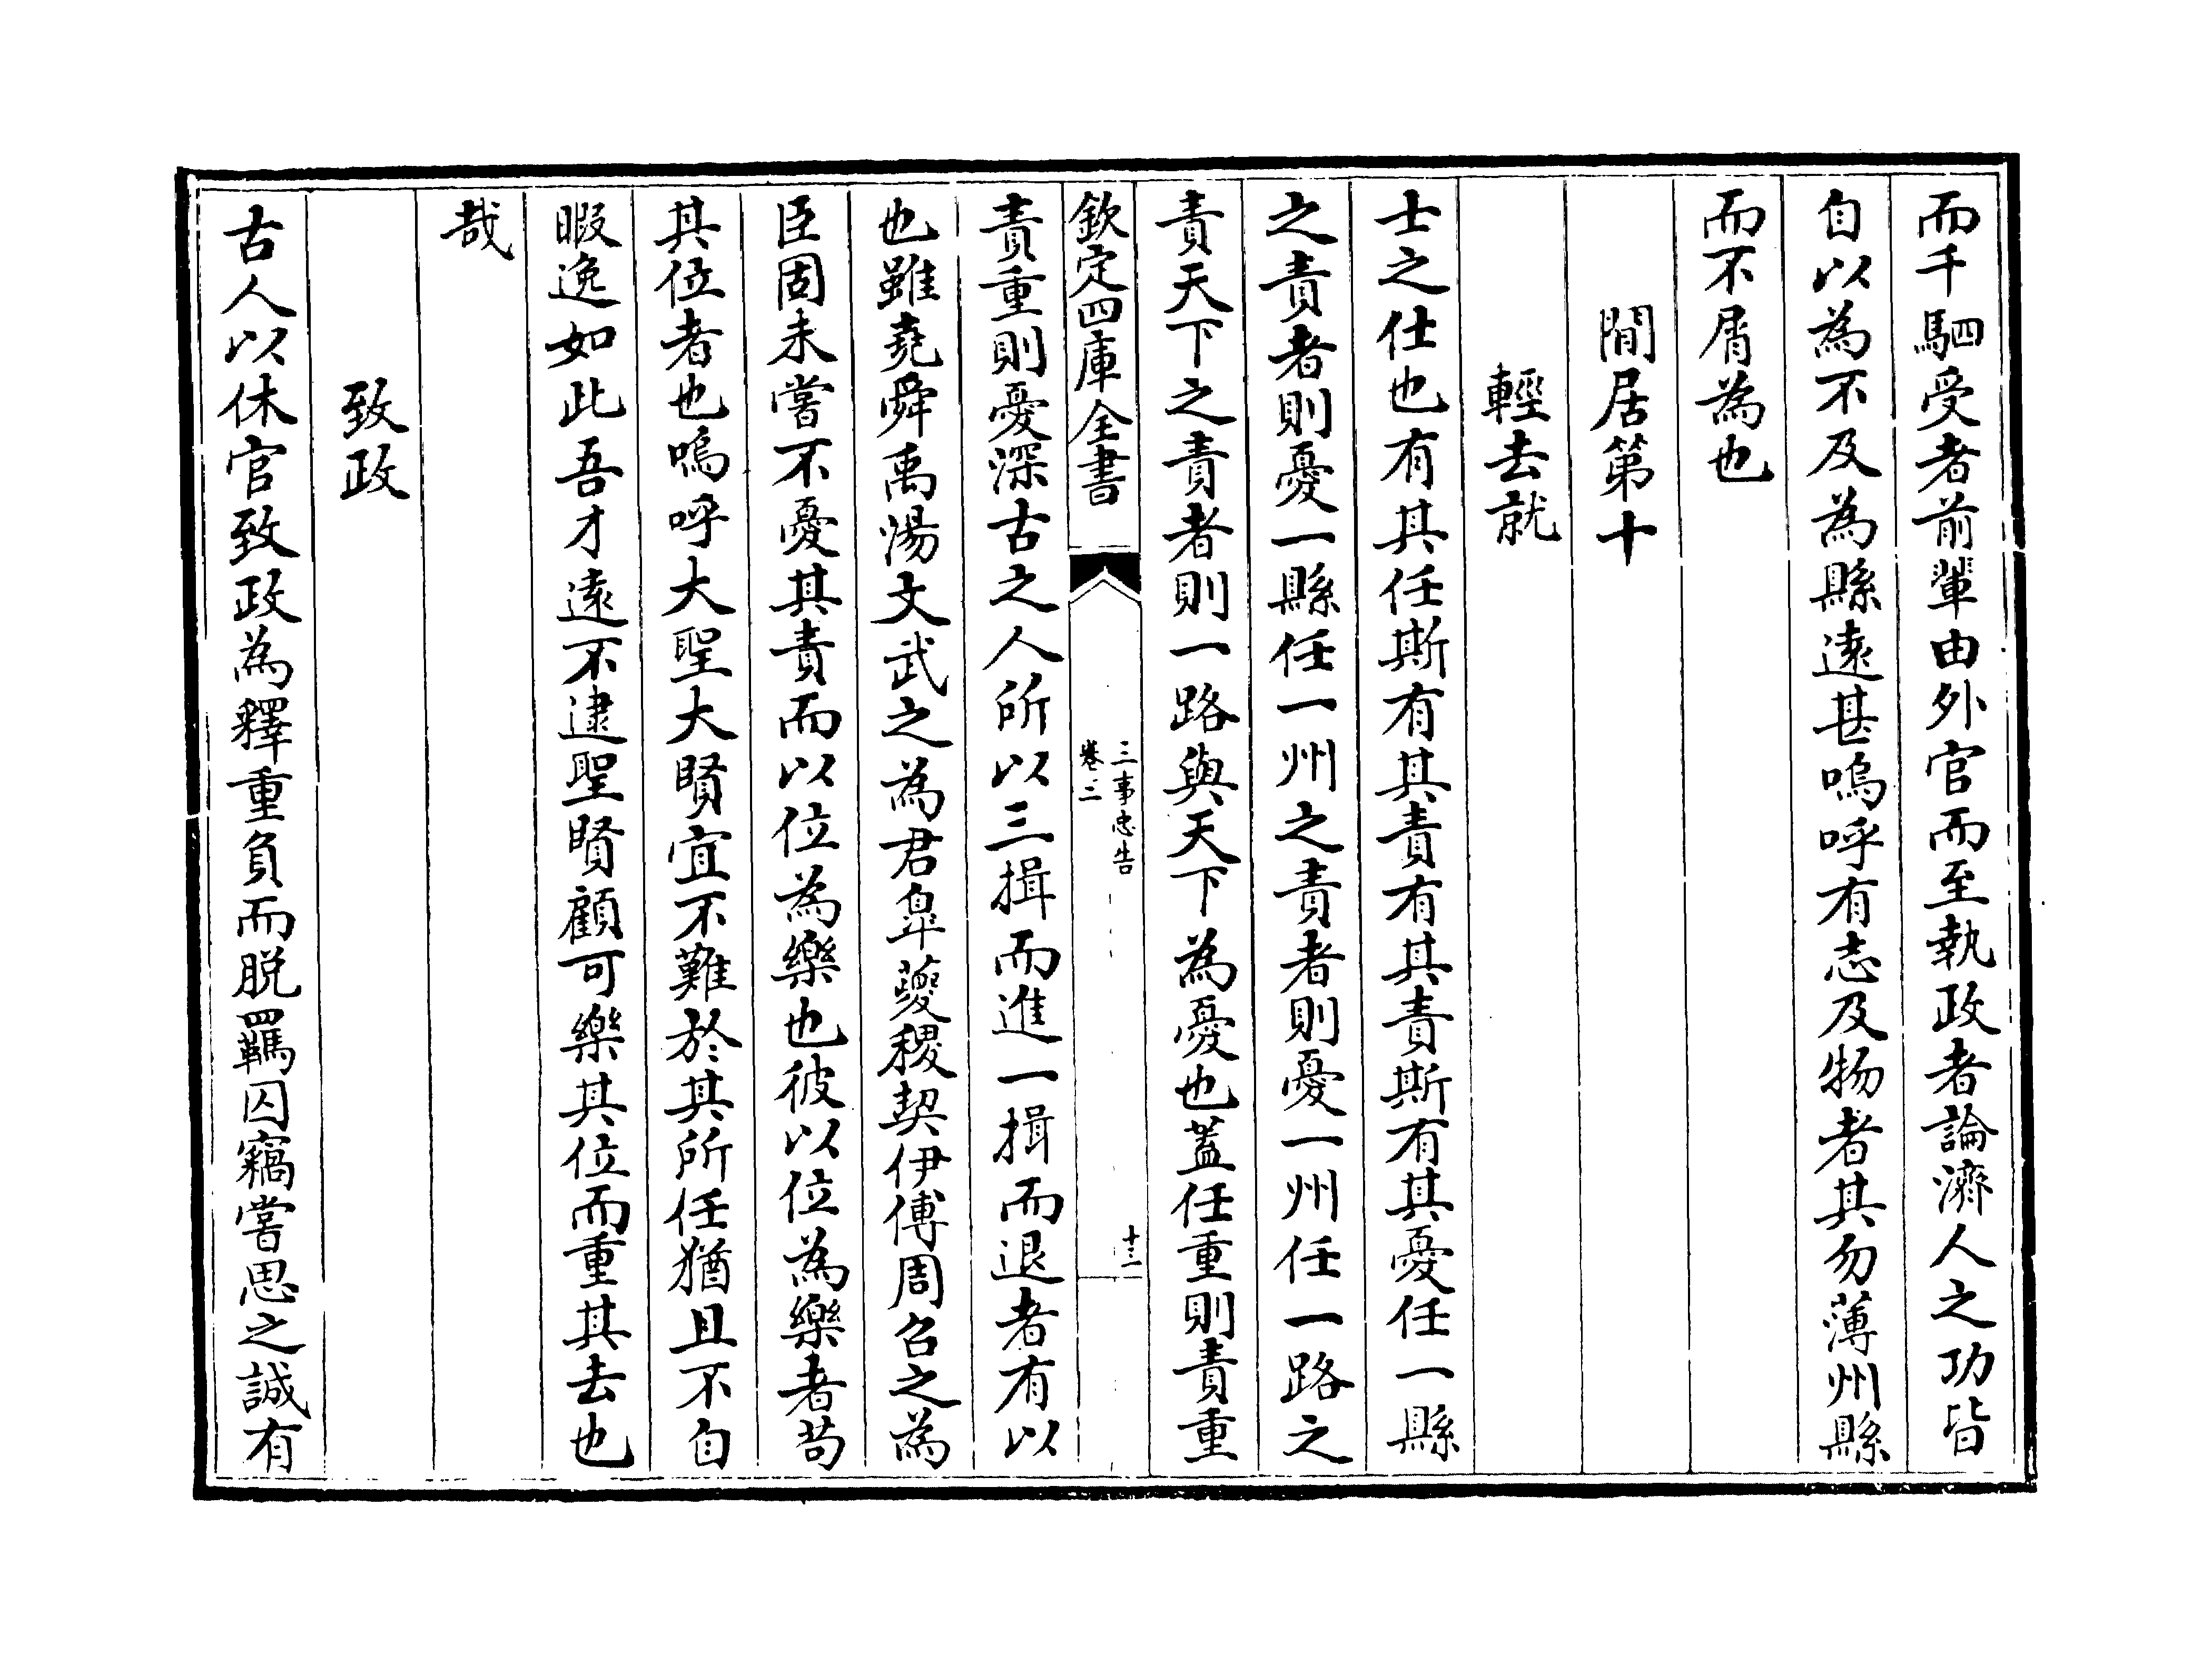 而千駟受者前輩由外官而至執政者論濟人之功皆
自以為不及為縣遠甚嗚呼有志及物者其勿薄州縣
而不屑為也
閒居第十
輕去就
士之仕也有其任斯有其責有其責斯有其憂任一縣
之責者則憂一縣任一州之責者則憂一州任一路之
責天下之責者則一路與天下為憂也蓋任重則責重
欽定四庫全書
三事忠告
卷三
十三
責重則憂深古之人所以三揖而進一揖而退者有以
也雖堯舜禹湯文武之為君臯夔稷契伊傅周召之為
臣固未嘗不憂其責而以位為樂也彼以位為樂者茍
其位者也嗚呼大聖大賢宜不難於其所任猶且不自
暇逸如此吾才遠不逮聖賢顧可樂其位而重其去也
哉
致政
古人以休官致政為釋重負而脱羈囚竊嘗思之誠有